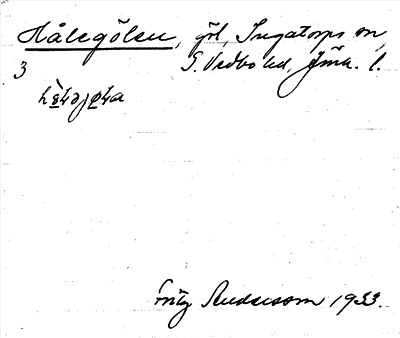 Hålegölen, göl, Ingatorps sn,
S. Vedbo hd, Jönk. l.
3
Fritz Andersson 1933.